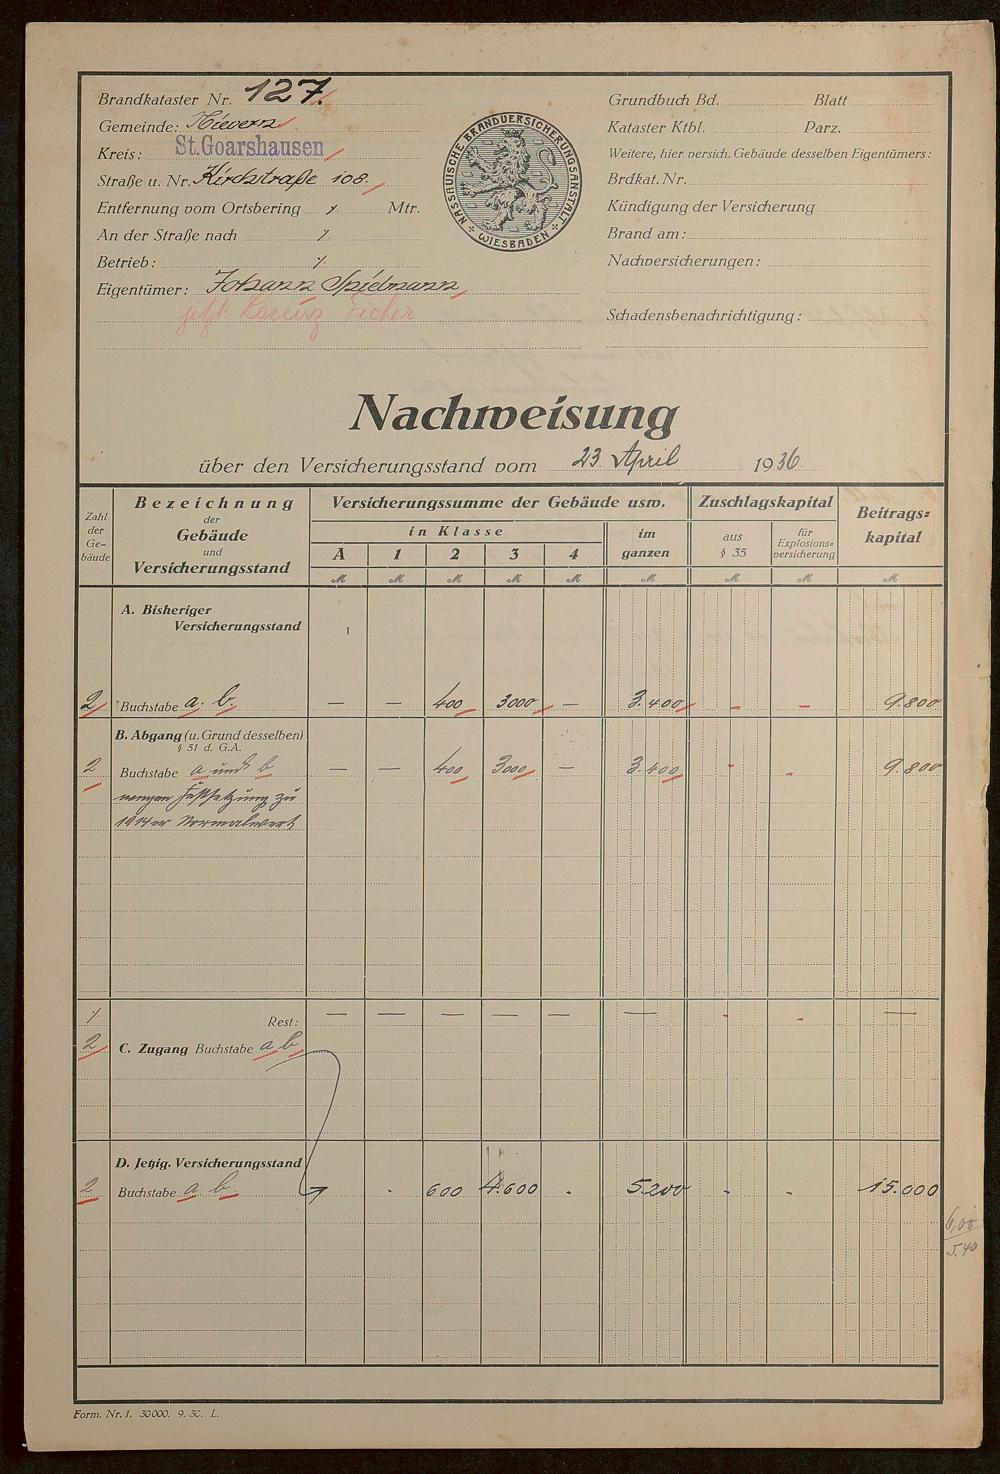 Brandkataster Nr. 127.
Gemeinde: Nievern
Kreis: St. Goarshausen
Straße u. Nr. Kirchstraße 108.
Entfernung vom Ortsbering ⁒ Mtr.
An der Straße nach ⁒
Betrieb: ⁒
Eigentümer: Johann Spielmann
jetzt Lorenz Ficher
NASSAUISCHE BRANDVERSICHERUNGSANSTALT
WIESBADEN
Grundbuch Bd. Blatt
Kataster Ktbl. Parz.
Weitere, hier versich. Gebäude desselben Eigentümers:
Brdkat. Nr.
Kündigung der Versicherung
Brand am:
Nachversicherungen:
Schadensbenachrichtigung:
Nachweisung
über den Versicherungsstand vom 23. April 1936.
Zahl der Ge-bäude
Bezeichnung der Gebäude und Versicherungsstand
Versicherungssumme der Gebäude usw.
in Klasse
A 1 2 3 4
im ganzen
Zuschlagskapital
aus § 35
für Explosions-versicherung
Beitrags-kapital
M M M M M M M M M
A. Bisheriger
Versicherungsstand
2 Buchstabe a. b. — — 400 3000 — 3.400 - - 9.800
B. Abgang (u. Grund desselben)
§ 51 d. G.A.
2 Buchstabe a und b — — 400 3000 — 3.400 - - 9.800
wegen Festsetzung zu
1914er Normalwert
⁒ Rest: — — — — — — - - —
2 C. Zugang Buchstabe a b
D. Jetzig. Versicherungsstand
2 Buchstabe a b - 600 4.600 - 5.200 - - 15.000
6,00
5.40
Form. Nr. 1. 30000. 9. 30. L.